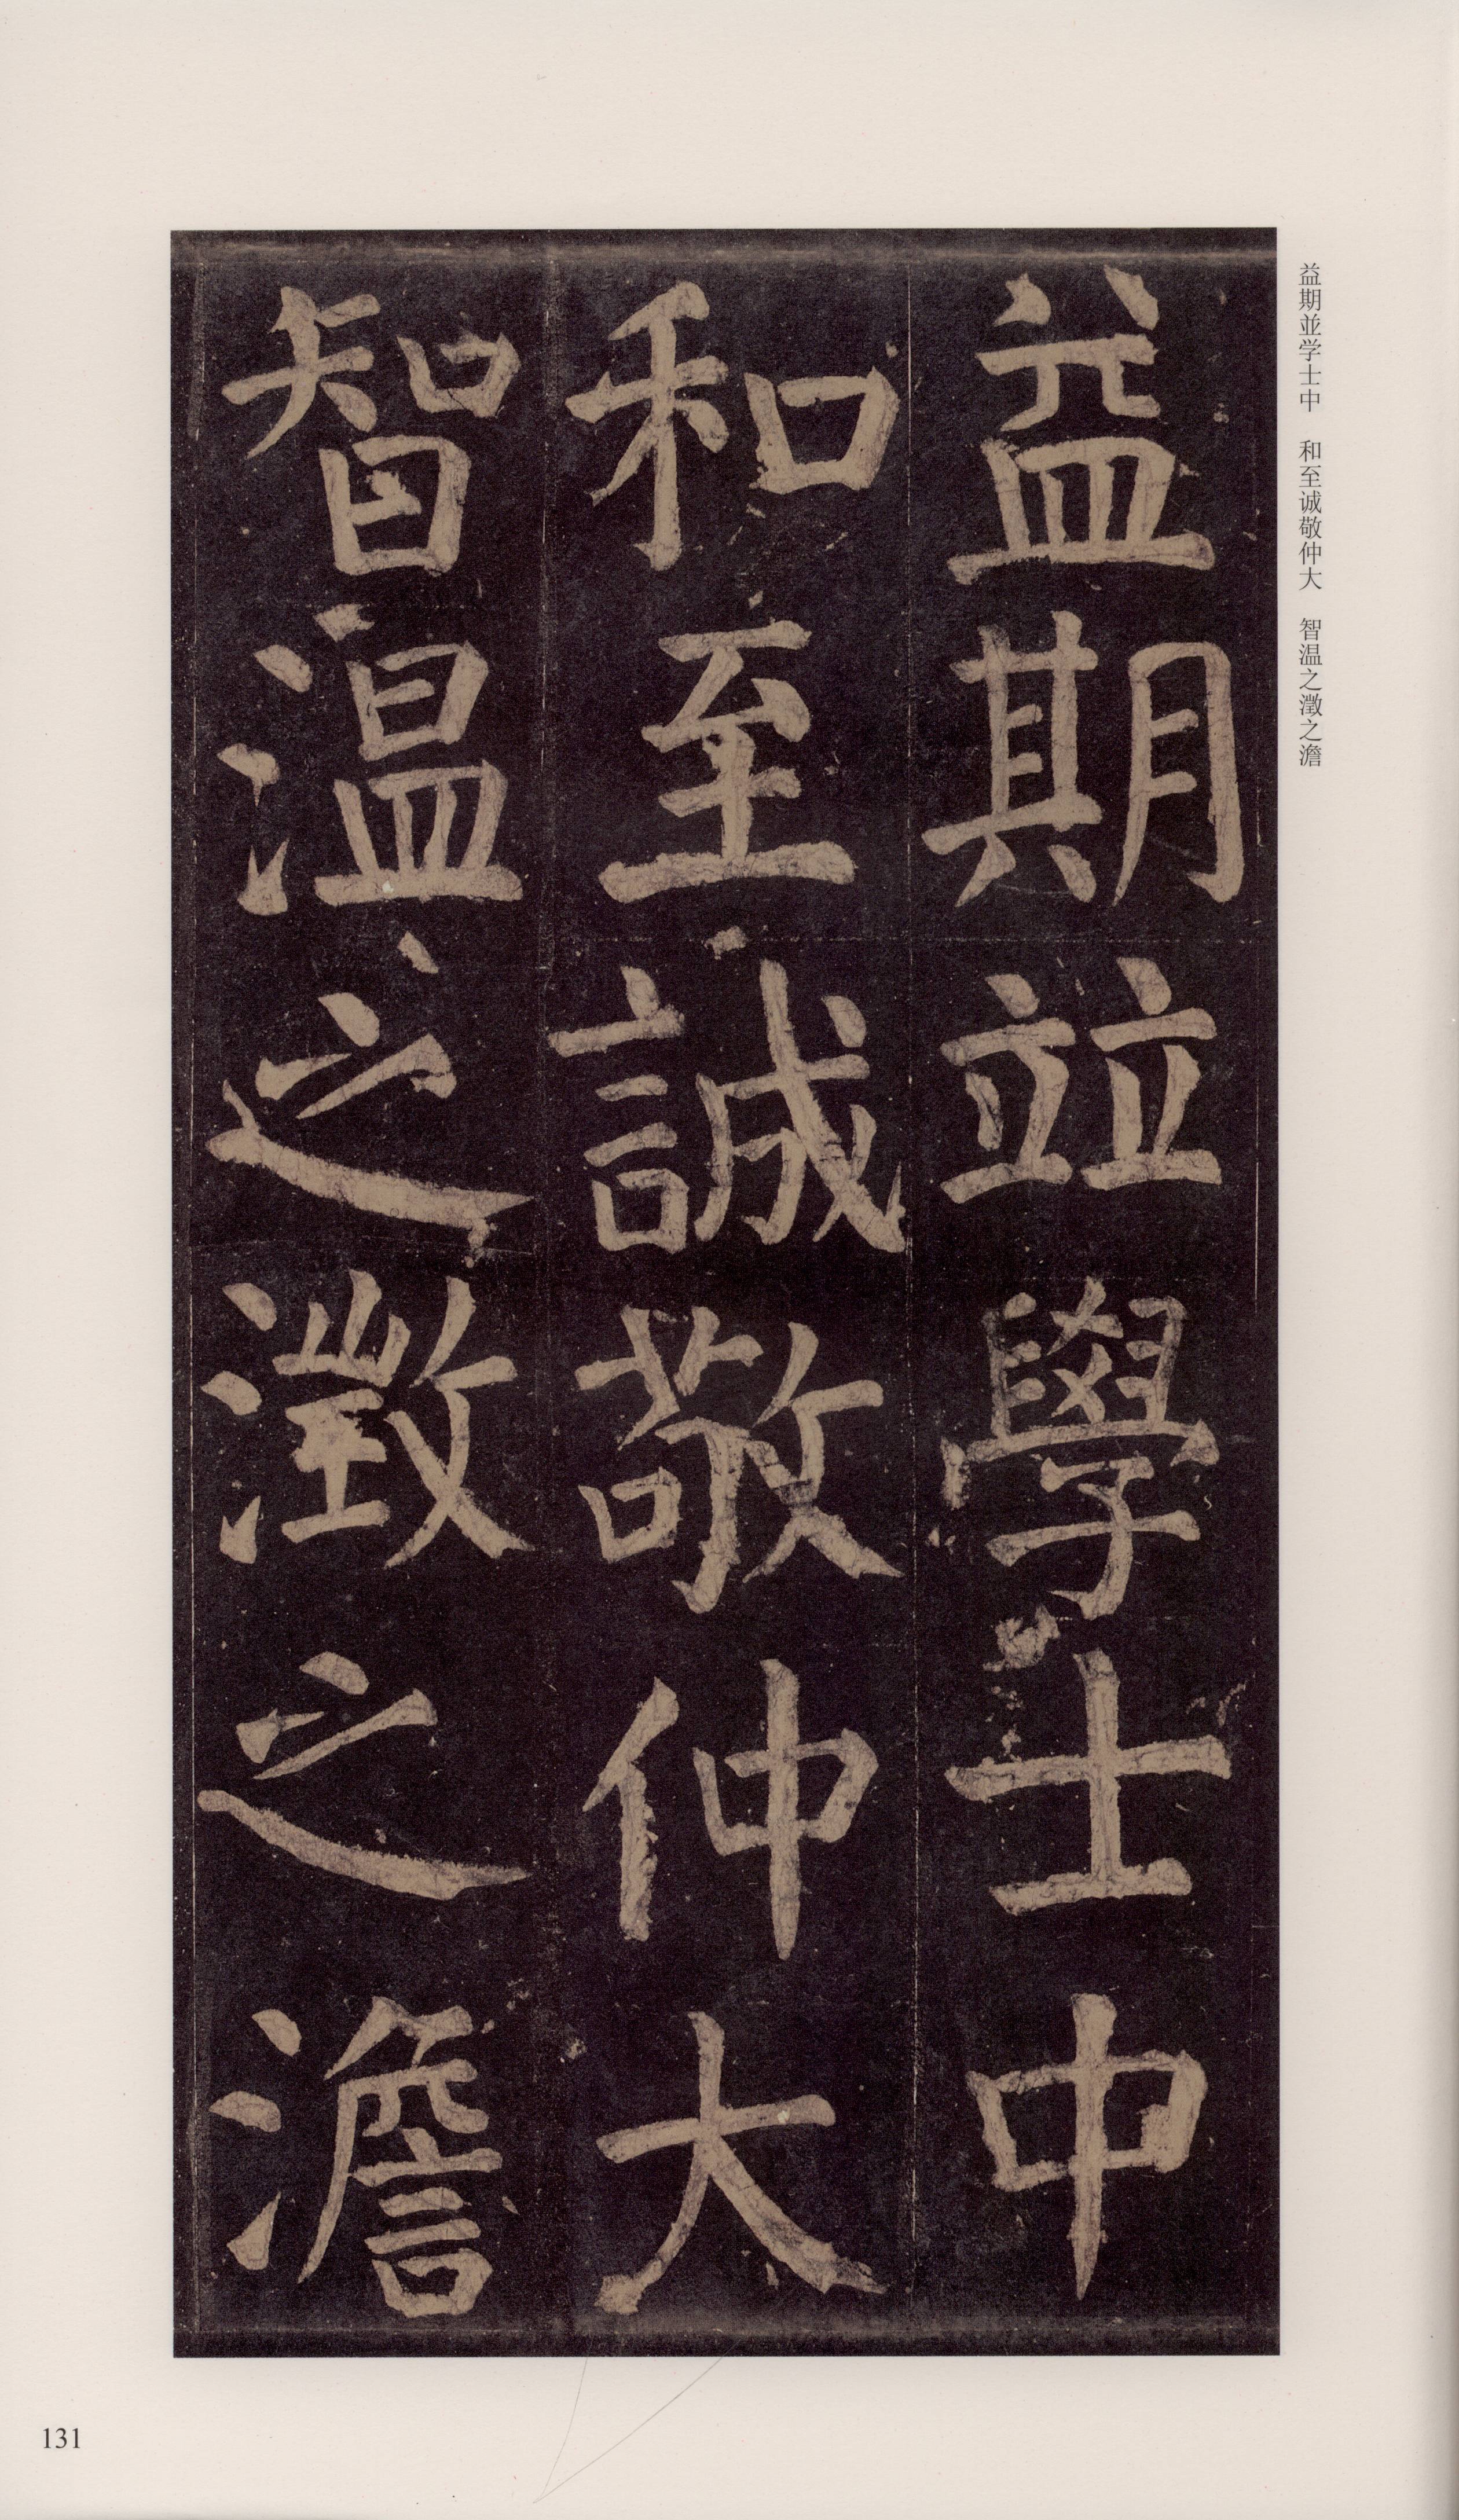 益期並学士中　和至诚敬仲大　智温之澂之澹
益期並學士中
和至誠敬仲大
智温之澂之澹
131